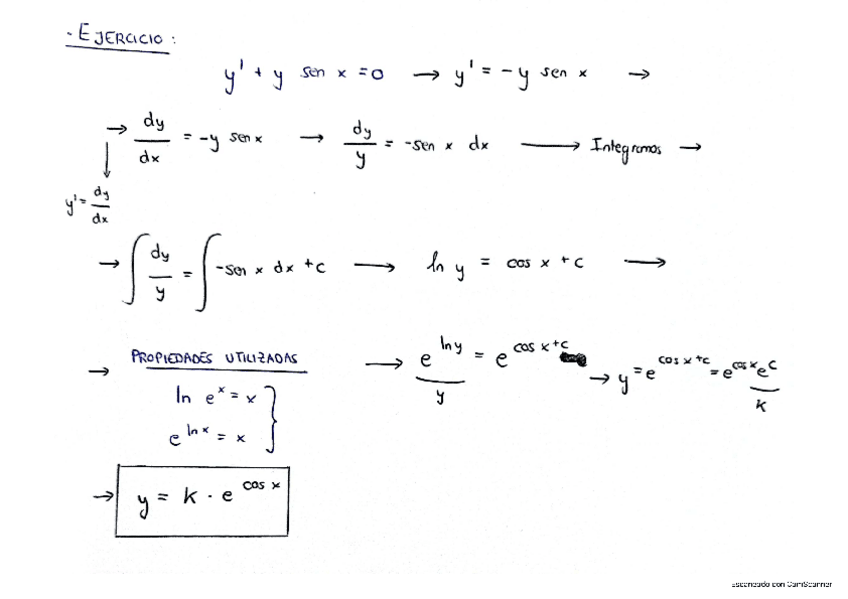 - EJERCICIO:
y' + y sen x = 0 → y' = -y sen x →
→ dy/dx = -y sen x → dy/y = -sen x dx → Integramos →
↓
y' = dy/dx
→ ∫ dy/y = ∫ -sen x dx + c → ln y = cos x + c →
→ PROPIEDADES UTILIZADAS
ln e^x = x
e^(ln x) = x
→ e^(ln y) = e^(cos x + c) → y = e^(cos x + c) = e^(cos x) e^c
y
k
→ y = k · e^(cos x)
Escaneado con CamScanner